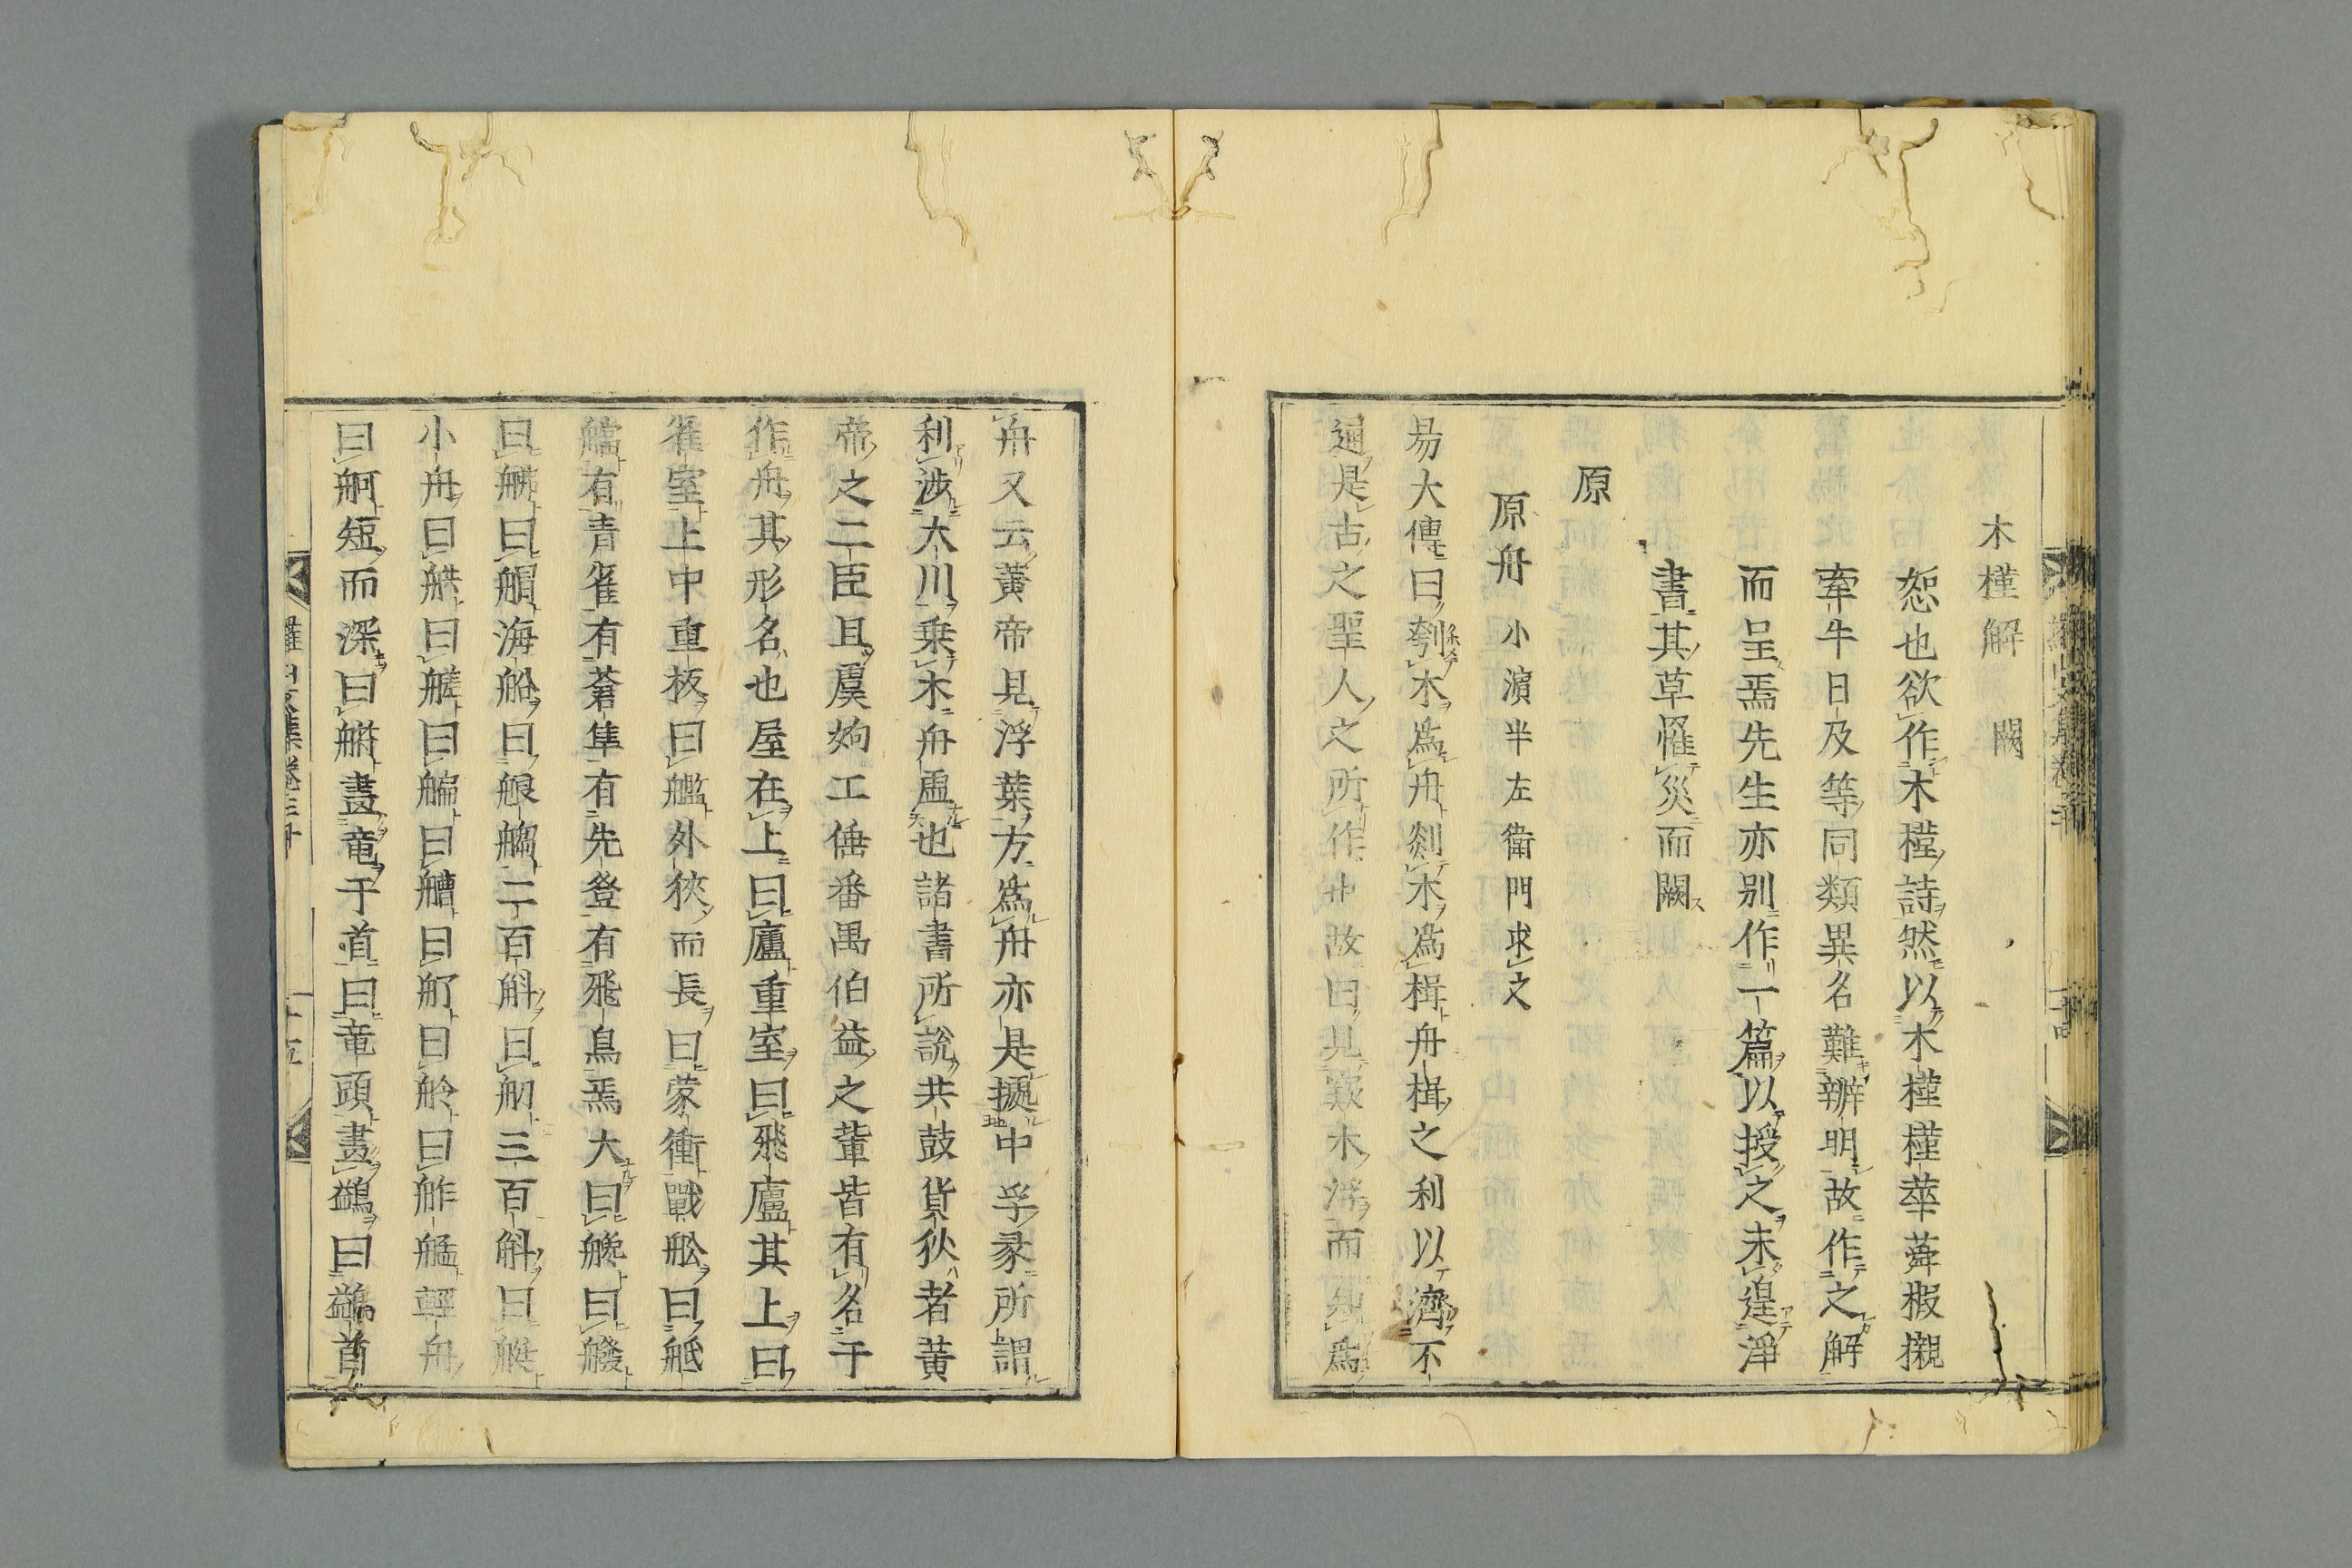 木槿解 闕
恕也欲作木槿詩然以木槿槿華蕣椴櫬
牽牛日及等同類異名難辨明故作之解
而呈焉先生亦別作一篇以授之未遑淨
書其草罹災而闕
原
原舟 小濵半左衛門求文
易大傳曰刳木爲舟剡木爲楫舟楫之利以濟不
通是古之聖人之所作也故曰見窾木浮而知爲
舟又云黃帝見浮葉方爲舟亦是據中孚彖所謂
利涉大川乗木舟虛也諸書所說共鼓貨狄者黃
帝之二臣且虞姁工倕番禺伯益之輩皆有名于
作舟其形名也屋在上曰廬重室曰飛廬其上曰
雀室上中重板曰艦外狹而長曰蒙衝戰舩曰䑡
艫有青雀有蒼隼有先登有飛鳥焉大曰艘曰艬
曰艜曰艒海舩曰艆䑽二百斛曰舠三百斛曰艇
小舟曰艤曰艖曰艑曰艚曰舸曰舲曰舴艋輕舟
曰舸短而深曰䑳畫竜于首曰竜頭畫鷁曰鷁首
羅山文集卷三十